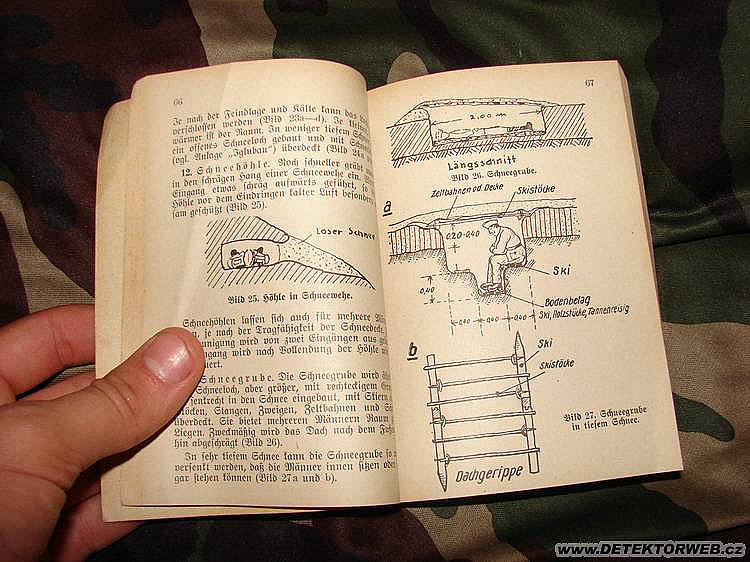 66
Je nach der Feindlage und Kälte kann das
verschlossen werden (Bild 23a—d). Je kleiner
wärmer ist der Raum. In weniger tiefem Schnee
ein offenes Schneeloch gebaut und mit
(vgl. Anlage „Iglubau“) überdeckt (Bild 24
12. Schneehöhle. Noch schneller gräbt
in den schrägen Hang einer Schneewehe ein.
Eingang etwas schräg aufwärts geführt, so
Höhle vor dem Eindringen kalter Luft besonders
sam geschützt (Bild 25).
Loser Schnee
Bild 25. Höhle in Schneewehe.
Schneehöhlen lassen sich auch für mehrere
je nach der Tragfähigkeit der Schneedecke
wird von zwei Eingängen aus
wird nach Vollendung der Höhle
Schneegrube. Die Schneegrube wird
Schneeloch, aber größer, mit rechteckigem
in den Schnee eingebaut, mit Skiern
Stangen, Zweigen, Zeltbahnen und
überdeckt. Sie bietet mehreren Männern Raum
Liegen. Zweckmäßig wird das Dach nach dem
hin abgeschrägt (Bild 26).
In sehr tiefem Schnee kann die Schneegrube so
versenkt werden, daß die Männer innen sitzen oder
gar stehen können (Bild 27a und b).
67
2,00 m
Längsschnitt
Bild 26. Schneegrube.
Zeltbahnen od. Decke
Skistöcke
a
0,20-0,40
Ski
0,40
Bodenbelag
0,40 0,40 0,40
Ski, Holzstücke, Tannenreisig
b
Ski
Skistöcke
Bild 27. Schneegrube
in tiefem Schnee.
Dachgerippe
www.DETEKTORWEB.cz